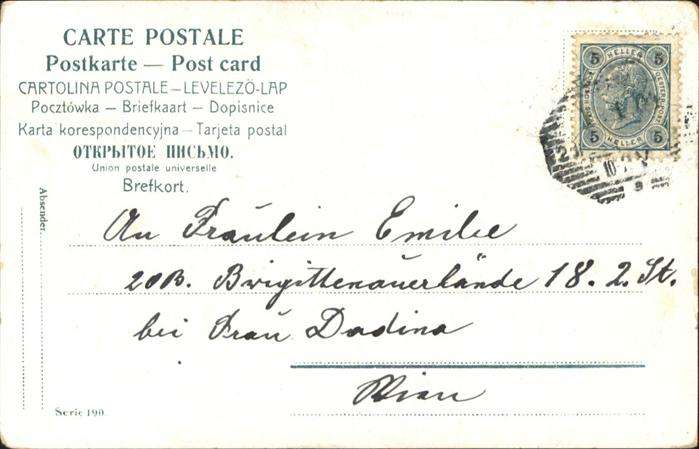 CARTE POSTALE
Postkarte — Post card
CARTOLINA POSTALE – LEVELEZÖ-LAP
Pocztówka – Briefkaart – Dopisnice
Karta korespondencyjna – Tarjeta postal
ОТКРЫТОЕ ПИСЬМО.
Union postale universelle
Brefkort.
5 HELLER 5
5 HELLER 5
Absender.
An Fräulein Emilie
20B. Brigittenauerlände 18. 2. St.
bei Frau Dadina
Wien
Serie 190.